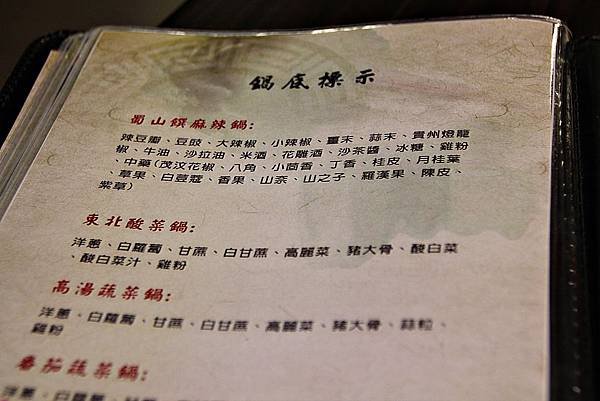 鍋底標示
蜀山饌麻辣鍋:
辣豆瓣、豆豉、大辣椒、小辣椒、薑末、蒜末、貴州燈籠
椒、牛油、沙拉油、米酒、花雕酒、沙茶醬、冰糖、雞粉
、中藥(茂汶花椒、八角、小茴香、丁香、桂皮、月桂葉
、草果、白荳蔻、香果、山奈、山之子、羅漢果、陳皮、
紫草)
東北酸菜鍋:
洋蔥、白蘿蔔、甘蔗、白甘蔗、高麗菜、豬大骨、酸白菜
、酸白菜汁、雞粉
高湯蔬菜鍋:
洋蔥、白蘿蔔、甘蔗、白甘蔗、高麗菜、豬大骨、蒜粒、
雞粉
番茄蔬菜鍋:
洋蔥、白蘿蔔、甘蔗、白